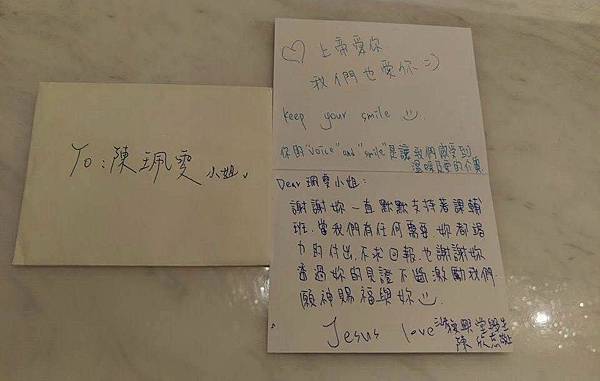 To: 陳珮雯 小姐
上帝愛你
我們也愛你 :)
keep your smile
你的"voice" and "smile"是讓我們感受到
溫暖且愛的
Dear 珮雯小姐:
謝謝妳一直默默支持著課輔
班,當我們有任何需要,妳都竭
力的付出,不求回報,也謝謝妳
透過妳的見證不斷激勵我們
願神賜福與妳
Jesus love
陳欣慈